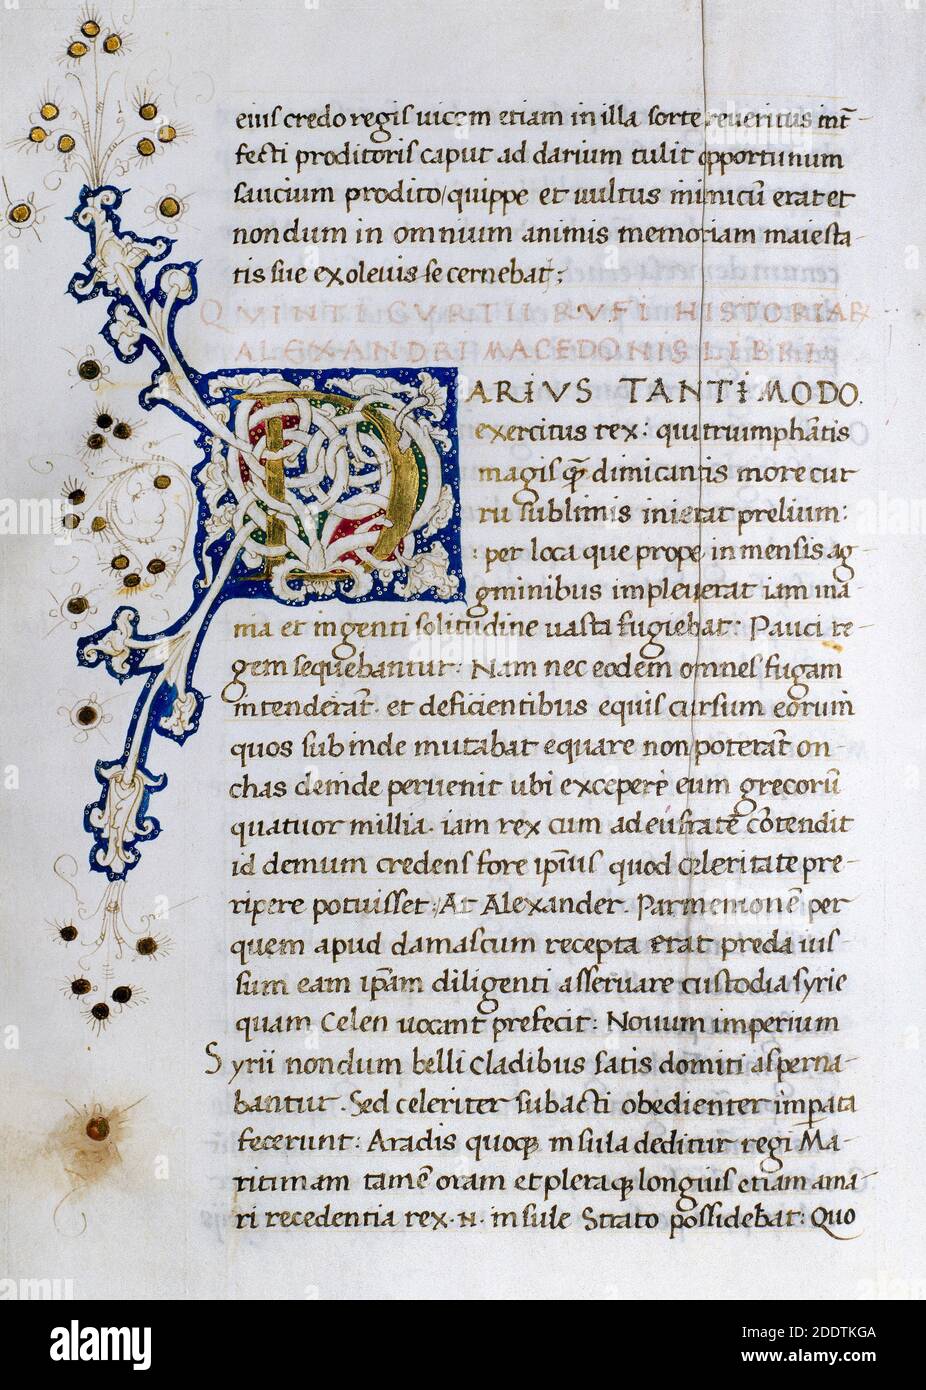 eius credo regis uicem etiam in illa sorte reueritus int̄
fecti proditoris caput ad darium tulit opportunum
saucium prodito/quippe et uultus inimicū erat et
nondum in omnium animis memoriam maiesta-
tis sue exoleuisse cernebat;
QVINTI CVRTII RVFI HISTORIAR
ALEXANDRI MACEDONIS LIBRI
DARIVS TANTI MODO.
exercitus rex: qui triumphātis
magis quā dimicantis more cur
ru sublimis inierat prelium:
: per loca que prope inmensis ag-
gminibus impleuerat iam ina-
nia et ingenti solitudine uasta fugiebat: Pauci re-
gem sequebantur: Nam nec eodem omnes fugam
intenderāt. et deficientibus equis cursum eorum
quos subinde mutabat equare non poterāt on-
chas deinde peruenit ubi excepere eum grecorū
quatuor millia. iam rex cum ad eufratē cōtendit
id demum credens fore ipsius quod celeritate pre-
ripere potuisset: At Alexander. Parmenionē per
quem apud damascum recepta erat preda ius-
sum eam ip̄am diligenti asseruare custodia syrie
quam Celen uocant prefecit: Nouum imperium
Syrii nondum belli cladibus satis domiti asperna-
bantur. Sed celeriter subacti obedienter īmpata
fecerunt: Aradis quoq insula deditur regi Ma-
ritimam tamē oram et pleraq longius etiam a ma-
ri recedentia rex. N. insule Strato possidebat: Quo
alamy
2DDTKGA
www.alamy.com